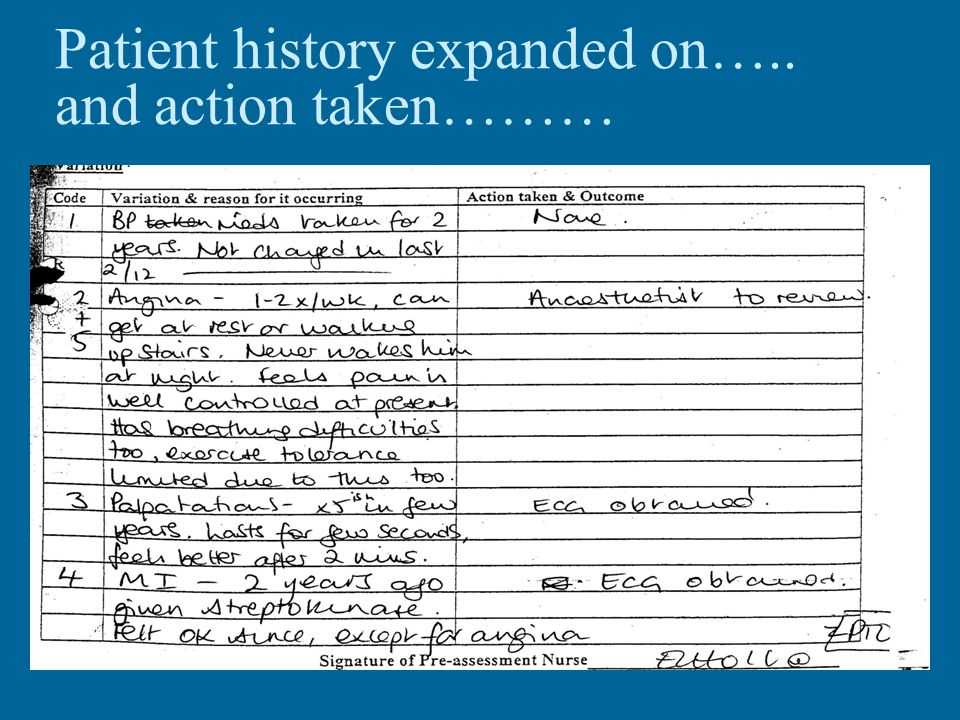 Patient history expanded on…..
and action taken………
Variation
Code Variation & reason for it occurring Action taken & Outcome
1 BP taken meds taken for 2 None.
years. Not changed in last
2/12
2 Angina - 1-2x/wk, can Anaesthetist to review.
+ get at rest or walking
5 up stairs. Never wakes him
at night. feels pain is
well controlled at present.
Has breathing difficulties
too, exercise tolerance
limited due to this too.
3 Palpatations - x5 ish in few ECG obtained.
years. Lasts for few seconds,
feel better after 2 mins.
4 MI - 2 years ago ECG obtained.
given streptokinase.
Felt OK since, except for angina
Signature of Pre-assessment Nurse